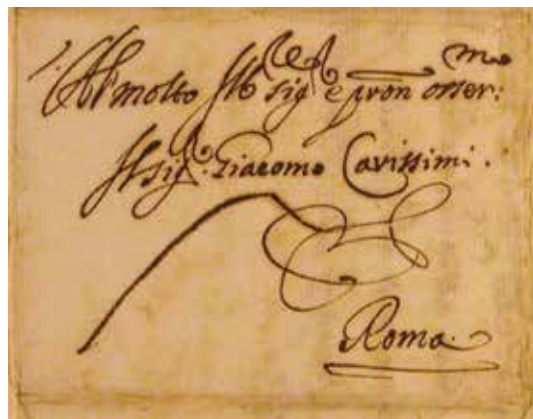 Al molto Ill sig e pron osser: mo
Il sig. Giacomo Cavissimi.
Roma.